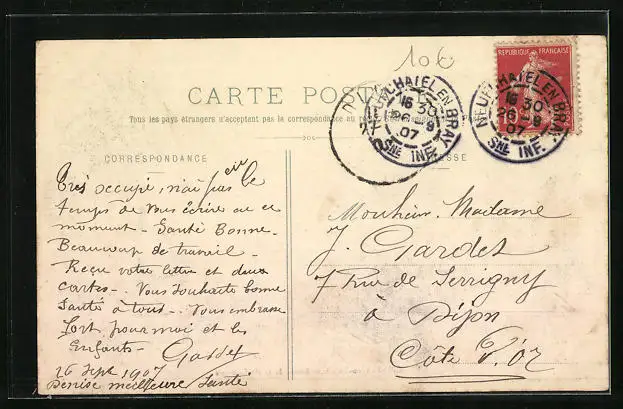 10€
REPUBLIQUE FRANÇAISE
CARTE POSTALE
Tous les pays étrangers n'acceptent pas la correspondance au
CORRESPONDANCE
ADRESSE
NEUFCHATEL EN BRAY
16 30
26 - 9
07
SNE INF.
NEUFCHATEL EN BRAY
16 30
26 - 9
07
SNE INF.
Très occupé, n'ai pas eu le
temps de vous écrire en ce
moment - Santé Bonne -
Beaucoup de travail -
Reçu votre lettre et deux
cartes - Vous souhaite bonne
santé à tous - Vous embrasse
fort pour moi et les
Enfants - Gardet
26 Sept 1907
Denise meilleure santé
Monsieur. Madame
J. Gardet
7 Rue de Serrigny
à Dijon
Côte d'Or